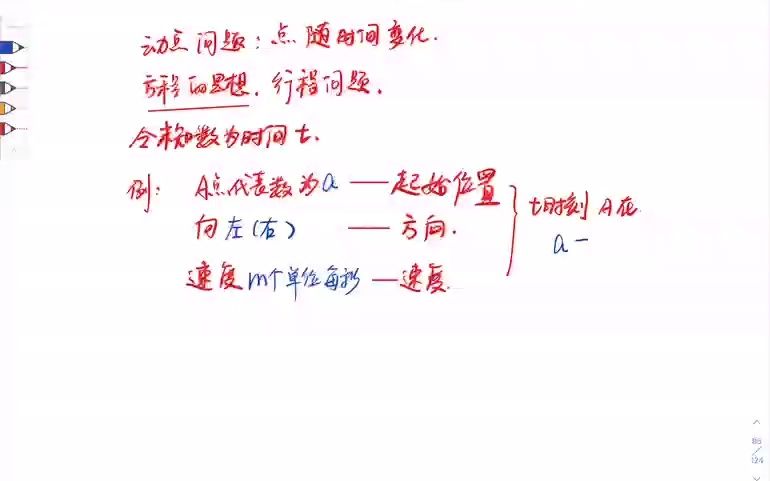 动点问题：点随时间变化.
方程的思想，行程问题.
令未知数为时间t.
例：A点代表数为a —— 起始位置
向左(右) —— 方向.
速度m个单位每秒 — 速度.
t时刻A在
a -
86
/
124